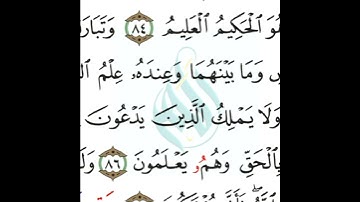 هُوَ ٱلْحَكِيمُ ٱلْعَلِيمُ ٨٤ وَتَبَارَ
وَمَا بَيْنَهُمَا وَعِندَهُۥ عِلْمُ
وَلَا يَمْلِكُ ٱلَّذِينَ يَدْعُونَ
بِٱلْحَقِّ وَهُمْ يَعْلَمُونَ ٨٦ وَلَ